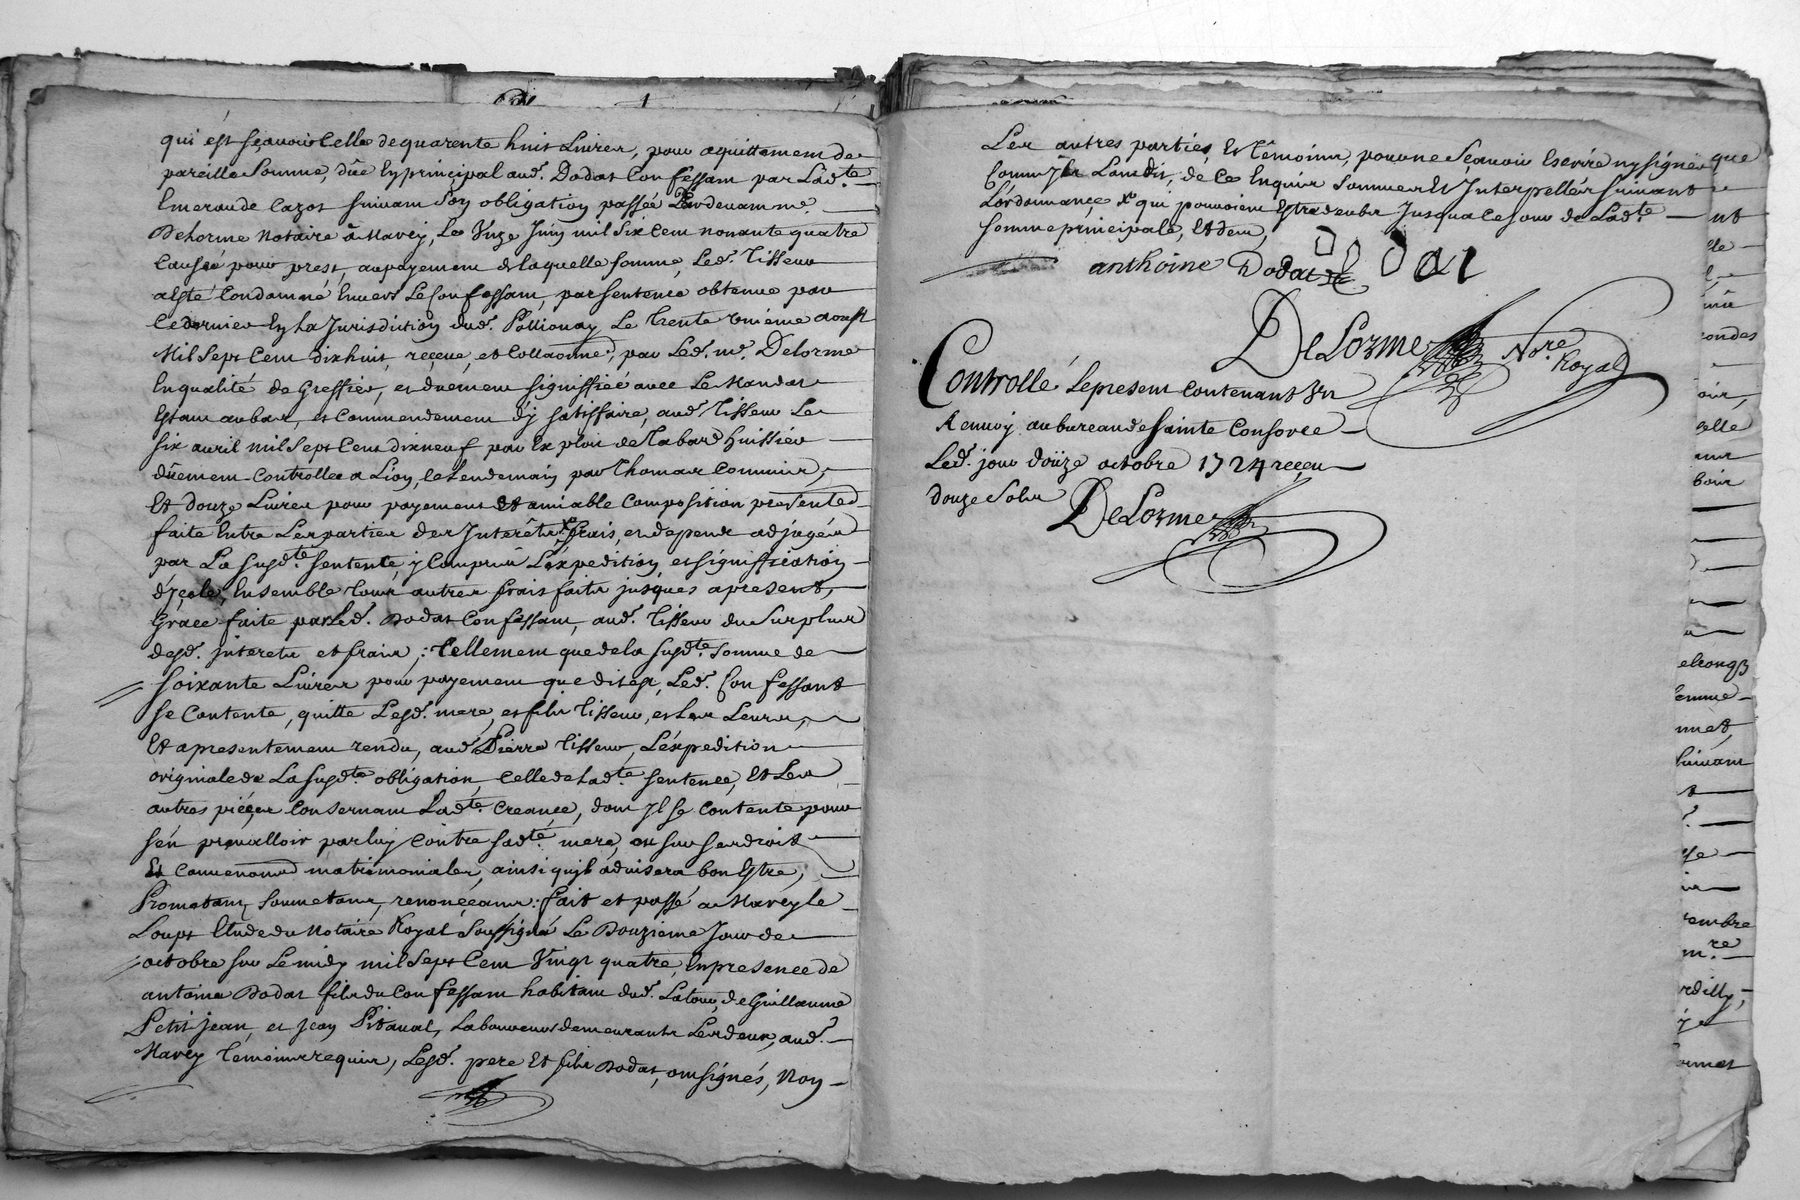 qui est sçavoir Celle de quarente huit Livres, pour aquittement de
pareille Somme, düe En principal aud. Dodat Confessant par Lad.te
Emeraude Cazot suivant Son obligation passée Pardevant me.
Delorme Notaire à Marcy, Le Unze Juin mil six Cent nonante quatre
Causée pour prest, au payement de laquelle somme, Led. Tisseur
a Esté Condamné Envers Le Confessant, par sentence obtenue par
Ce dernier En La Jurisdiction dud. Pollionay Le trente unième aoust
Mil sept Cent dixhuit, receüe, et Collaonnée, par Led. me. Delorme
En qualité de Greffier, et duement signiffiée avec Le Mandat
Estant au bas, et Commendement d'y satisfaire, aud. Tisseur Le
six avril mil sept Cent dixneuf par Exploit de Tabard huissier
düement Controllee a Lion, le Lendemain par Thomas Commis;
Et douze Livres pour payement Et amiable Composition presentement
faite Entre Les parties des Interêts, frais, et depens adjugés
par La Susd.te sentente, y Compris L'expedition, et signiffication
d'ycelle, Ensemble tous autres frais faits jusques a present,
Grace faite par Led. Dodat Confessant, aud. Tisseur du Surplus
desd. interets et frais; Tellement que de la susd.te somme de
soixante Livres pour payement que dit est, Led. Confessant
se Contente, quitte Lesd. mere, et fils Tisseur, et Les Leurs,
Et a presentement rendu, aud. Pierre Tisseur, L'expedition
originale de La susd.te obligation, Celle de lad.te sentence, Et Les
autres piéçes Consernant Lad.te Creance, dont Il se Contente pour
s'en prevalloir par luy Contre sad.te mere, ou sur ses droits
Et Conventions matrimoniales, ainsi qu'il advisera bon Estre,
Prometant, soumetant, renonçéant: fait et passé a Marcy le
Loups Etude du Notaire Royal Soussigné Le Douzieme Jour de
octobre sur Le midy mil sept Cent Vingt quatre, En presence de
antoine Dodat fils du Confessant habitant dud. Latour, de Guillaume
Petit jean, et Jean Pitaval, Laboureurs demeurants Les deux, aud.
Marcy temoins requis, Lesd. pere Et fils Dodat, ont signés, Non
Les autres parties, Et témoins, pour ne Sçavoir Escrire ny signer
Comm'Ils L'ont dit, de Ce Enquis sommes Et Interpellés suivant
L'ordonnance, qui pouvoient Estre deubs Jusqua Ce jour de Lad.te
somme principale, Et deu,
anthoine Dodat
DeLorme No.re Royal
Controllé Le present Contenant Un
Renvoy au bureau de Sainte Consorce
Led. jour doüze octobre 1724 reçeu
douze Sols
DeLorme